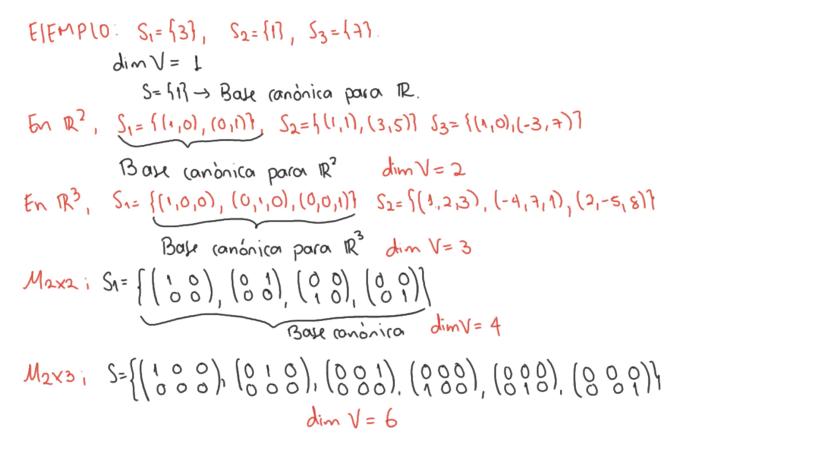 EJEMPLO: S₁={3}, S₂={1}, S₃={7}.
dim V = 1
S={1} → Base canónica para ℝ.
En ℝ², S₁={(1,0),(0,1)}, S₂={(1,1),(3,5)} S₃={(1,0),(-3,7)}
Base canónica para ℝ² dim V=2
En ℝ³, S₁={(1,0,0), (0,1,0),(0,0,1)} S₂={(1,2,3), (-4,7,1),(2,-5,8)}
Base canónica para ℝ³ dim V=3
M2x2; S₁={(1 0 / 0 0), (0 1 / 0 0), (0 0 / 1 0), (0 0 / 0 1)}
Base canónica dim V=4
M2x3; S={(1 0 0 / 0 0 0), (0 1 0 / 0 0 0), (0 0 1 / 0 0 0), (0 0 0 / 1 0 0), (0 0 0 / 0 1 0), (0 0 0 / 0 0 1)}
dim V = 6